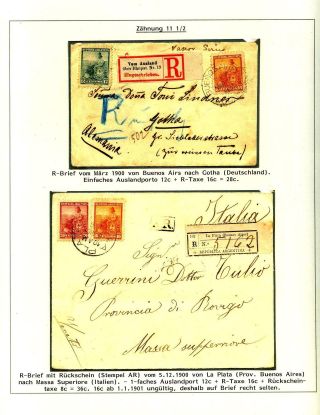 Zähnung 11 1/2
Vapor Sirio
Vom Ausland
über Bhnpst. Nr. 13
Eingeschrieben.
R
R
Señora Doña Toni Lindner
Gotha
Alemania
R-Brief vom März 1900 von Buenos Airs nach Gotha (Deutschland).
Einfaches Auslandporto 12c + R-Taxe 16c = 28c.
Italia
R
La Plata (Buenos Aires)
R No 3162
REPUBLICA ARGENTINA
Sign.
Guerrini Dottor Tullio
Provincia di Rovigo
Massa superiore
R-Brief mit Rückschein (Stempel AR) vom 5.12.1900 von La Plata (Prov. Buenos Aires)
nach Massa Superiore (Italien). - 1-faches Auslandport 12c + R-Taxe 16c + Rückschein-
taxe 8c = 36c. 16c ab 1.1.1901 ungültig, deshalb auf Brief recht selten.